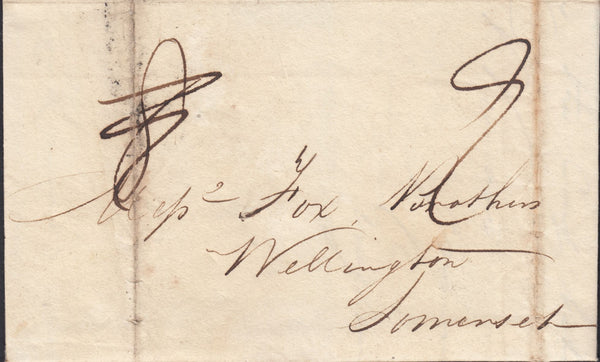 Messrs Fox, Brothers
Wellington
Somerset